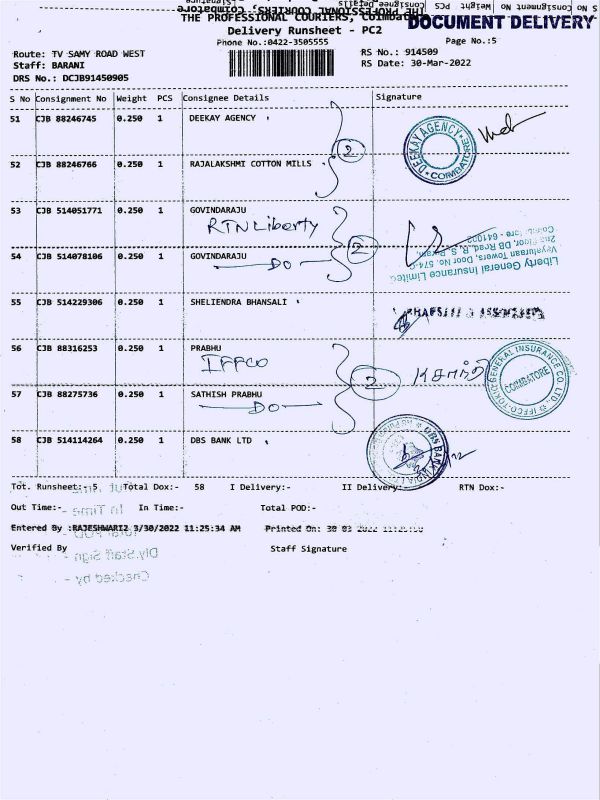 S No Consignment No Weight PCS Consignee Details
THE PROFESSIONAL COURIERS, Coimbatore
DOCUMENT DELIVERY
Delivery Runsheet - PC2
Phone No.:0422-3505555 Page No.:5
Route: TV SAMY ROAD WEST RS No.: 914509
Staff: BARANI RS Date: 30-Mar-2022
DRS No.: DCJB91450905
S No Consignment No Weight PCS Consignee Details Signature
51 CJB 88246745 0.250 1 DEEKAY AGENCY
DEEKAY AGENCY COIMBATORE
2
52 CJB 88246766 0.250 1 RAJALAKSHMI COTTON MILLS
53 CJB 514051771 0.250 1 GOVINDARAJU
RTN Liberty
2
54 CJB 514078106 0.250 1 GOVINDARAJU
DO
Liberty General Insurance Limited
Door No. 574-C
2nd Floor, DB Road, R. S. Puram,
641002
55 CJB 514229306 0.250 1 SHELIENDRA BHANSALI
56 CJB 88316253 0.250 1 PRABHU
IFFCO
2
IFFCO-TOKIO GENERAL INSURANCE CO. LTD.,
COIMBATORE
57 CJB 88275736 0.250 1 SATHISH PRABHU
DO
58 CJB 514114264 0.250 1 DBS BANK LTD
DBS BANK INDIA LTD
Tot. Runsheet:- 5 Total Dox:- 58 I Delivery:- II Delivery:- RTN Dox:-
Out Time:- In Time:- Total POD:-
In Time -
Total POD
Entered By :RAJESHWARI2 3/30/2022 11:25:34 AM Printed On: 30 03 2022
Verified By Staff Signature
Dly.Staff Sign
Checked by -